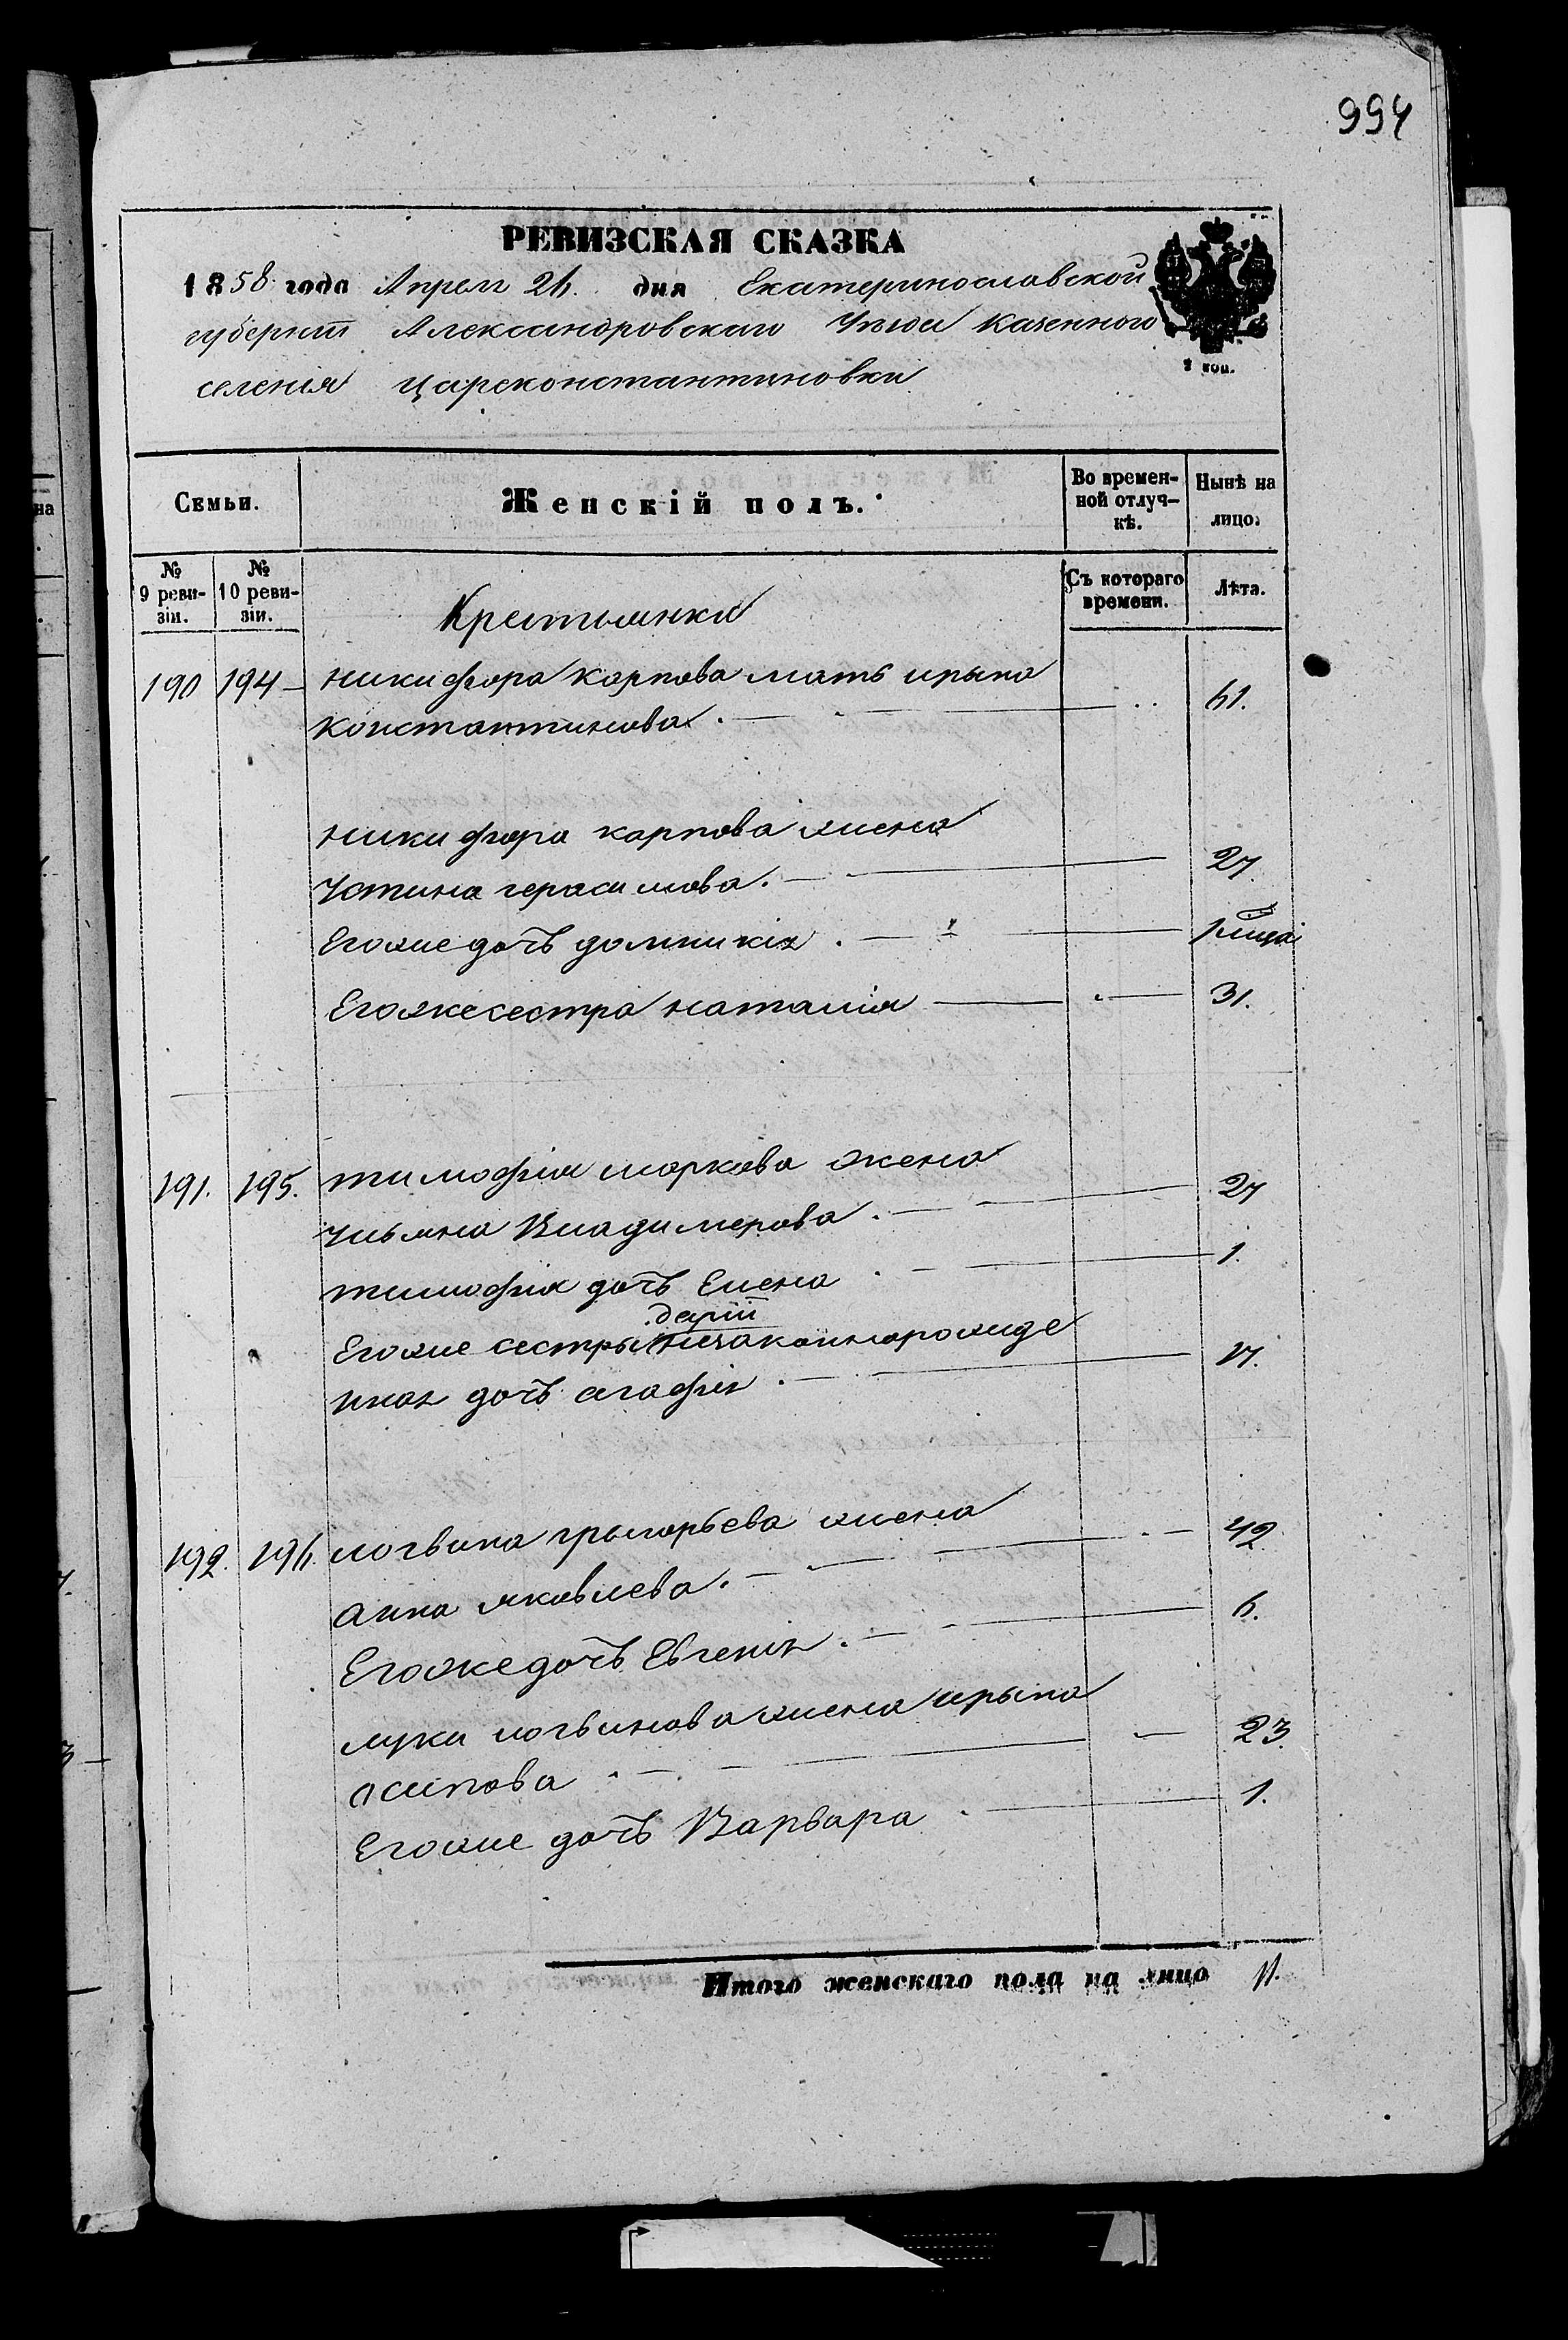 994
РЕВИЗСКАЯ СКАЗКА
1858 года Апреля 26. дня Екатеринославской
губерніи Александровскаго Уѣзда Казенного
селенія Цареконстантиновки
2 коп.
Семьи.
Женскій полъ.
Во времен-
ной отлуч-
кѣ.
Нынѣ на
лицо.
№
9 реви-
зіи.
№
10 реви-
зіи.
Съ котораго
времени.
Лѣта.
Крестьянки
190 194 никифора карпова мать ирына
константинова. 61.
никифора карпова жена
Устина герасимова. 27.
Егоже дочъ домникія. 1
Егоже сестра наталія 31.
191. 195. тимофія маркова жена
Ульяна Владимерова. 27
тимофія дочъ Елена 1.
даріи
Егоже сестры незаконнорожде
ная дочъ агафія. 17.
192. 196. логвина грыгорьева жена
анна яковлева. 42
Егоже дочъ Евгенія. 6.
луки логвинова жена ирына
осипова 23.
Егоже дочъ Варвара 1.
Итого женскаго пола на лицо 11.